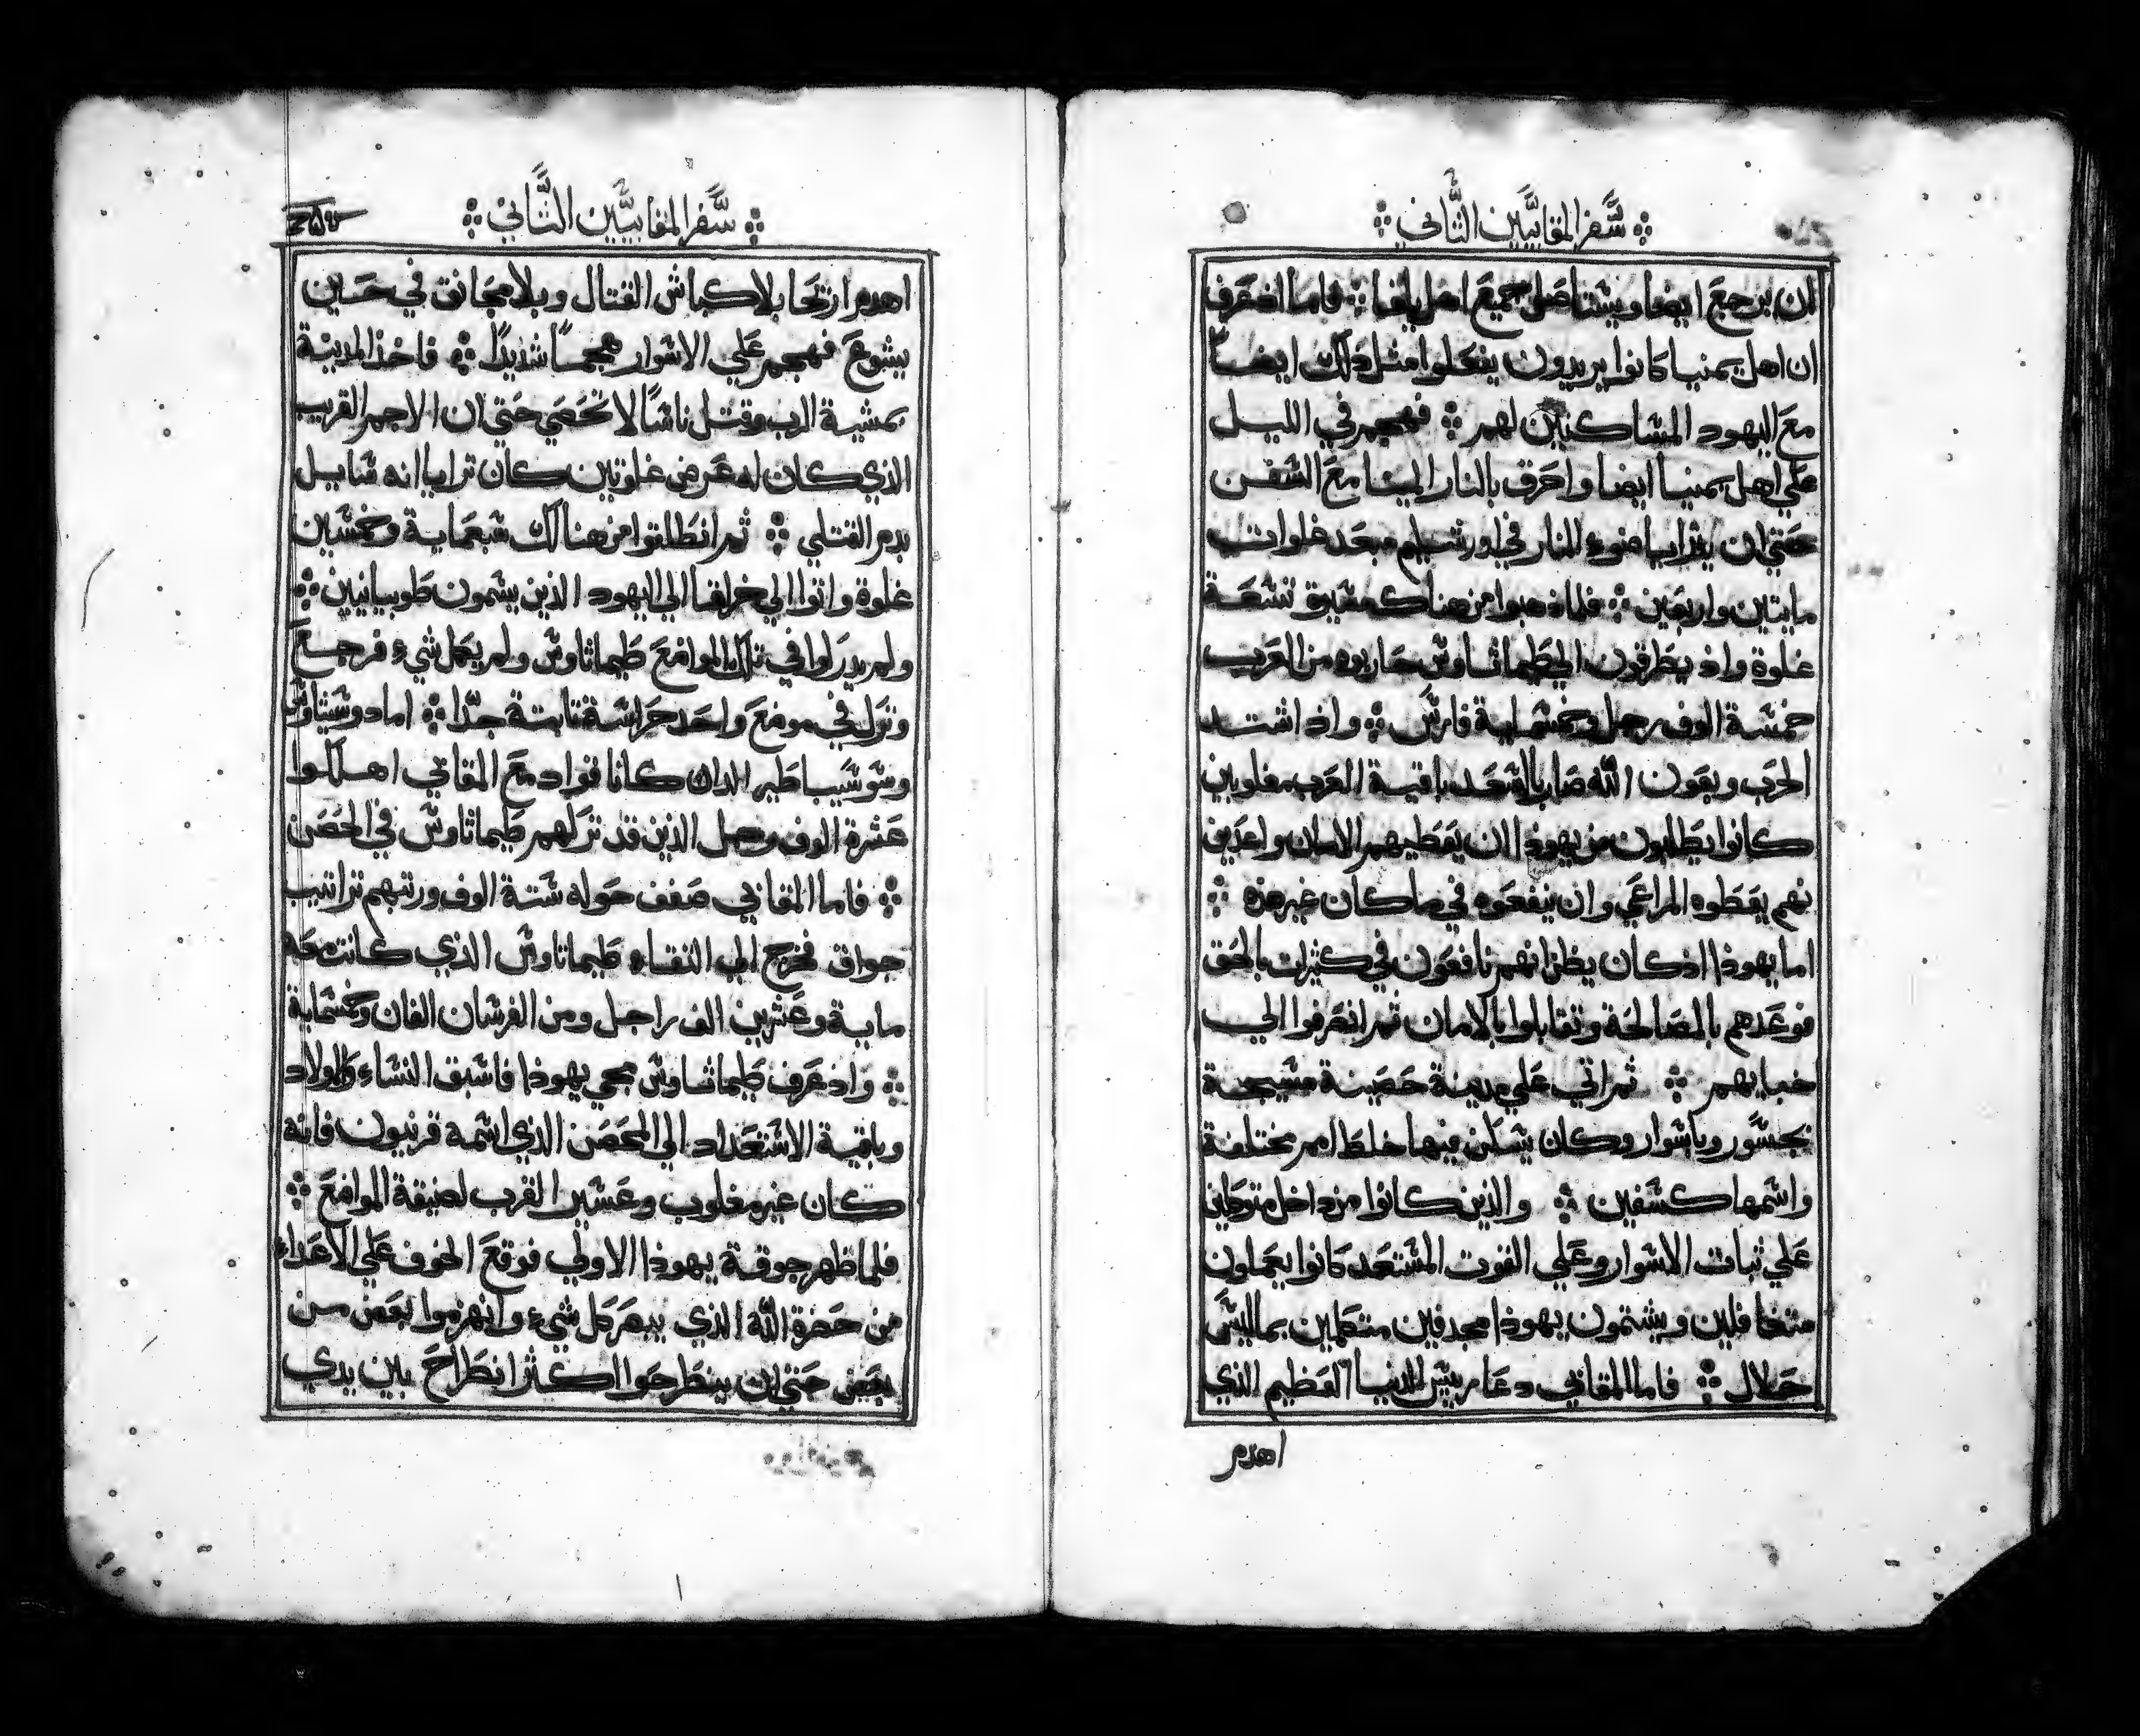 ⁘ سَّفر المقابيَّين الثَّاني ⁘
ان يرجع ايضا ويشتاصل جميع اهل يافا ⁘ فاما اذ عرف
ان اهل يمنيا كانوا يريدون يفعلوا مثل ذلك ايضاً
مع اليهود المشاكنين لهم ⁘ فهجم في الليل
علي اهل يمنيا ايضا واحرق بالنار المينا مع الشفن
حتي ان يترايا ضوء النار في اورشليم مبعد غلوات
مايتين واربعين ⁘ فلما ذهبوا من هناك مشيرة تشعة
غلوة واذ يطرقون الي طيماثاوش حاربوه من العرب
خمشة الوف رجل وخمشماية فارش ⁘ واذ اشتد
الحرب وبعون الله صار بالشعد باقية العرب مغلوبين
كانوا يطلبون من يهوذا ان يعطيهم الامان واعدين
نهم يعطوه المراعي وان ينفعوه في ما كان غير هذه ⁘
اما يهوذا اذ كان يظن انهم نافعون في كثيرات بالحق
فوعدهم بالمصالحة وتقابلوا بالامان ثم انصرفوا الي
خبايهم ⁘ ثم اتي علي مدينة حصينة مشيجة
بجشور وباشوار وكان يشكن فيها خلط امم مختلفة
واشمها كشفين ⁘ والذين كانوا من داخل متوكلين
علي ثبات الاشوار وعلي القوت المشتعد كانوا يعملون
متغافلين ويشتمون يهوذا مجدفين متكلمين بما ليش
حلال ⁘ فاما المقابي دعا رييش الدنيا العظيم الذي
اهدم
⁘ سَّفر المقابيَّين الثَّاني ⁘
اهدم اريحا بلا كباش القتال وبلا مجانق في حين
يشوع فهجم علي الاشوار هجماً شديدًا ⁘ فاخذ المدينة
بمشية الرب وقتل ناشًا لا تحصي حتي ان الاجم القريب
الذي كان له عرض غلوتين كان ترايا انه شايل
بدم القتلي ⁘ ثم انطلقوا من هنالك شبعماية وخمشين
غلوة واتوا الي خراقا الي اليهود الذين يشمون طوبيانيين ⁘
ولم يدركوا في تلك المواضع طيماثاوش ولم يعمل شيء فرجع
وترك في موضع واحد حراشة ثابتة جدّا ⁘ اما دوشيثاوش
وشوشيباطير اللذان كانا قواد مع المقابي اهلكوا
عشرة الوف رجل الذين قد تركهم طيماثاوش في الحصن
⁘ فاما المقابي صفف حوله شتة الوف ورتبهم تراتيب
جواق فخرج الي التقاء طيماثاوش الذي كانت معه
ماية وعشرين الف راجل ومن الفرشان الفان وخمشماية
⁘ واذ عرف طيماثاوش بمجي يهوذا فاشبق النشاء والاولاد
وباقية الاشتعداد الي الحصن الذي اشمه قرنيون فانه
كان غير مغلوب وعشير القرب لضيقة المواضع ⁘
فلما ظهر جوقة يهوذا الاولي فوقع الخوف علي الاعداء
من حضرة الله الذي يبصر كل شيء وانهزموا بعض من
بعض حتي ان ينطرحوا اكثر انطراح بين يدي